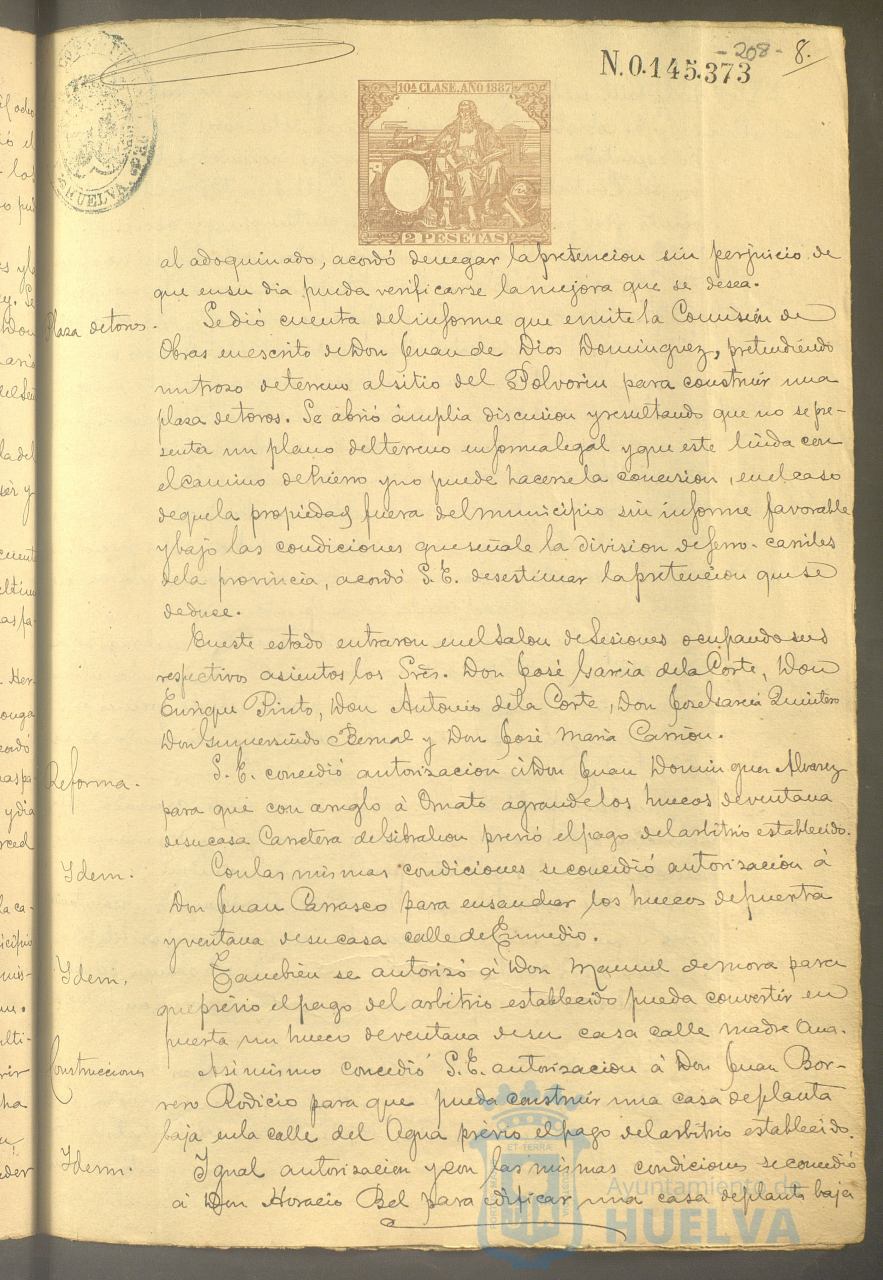 - 208 - 8.
N.0.145.373
10ª CLASE. AÑO 1887
2 PESETAS
HUELVA
al adoquinado, acordó denegar la pretencion sin perjuicio de
que en su dia pueda verificarse la mejora que se desea.
Plaza de toros.
Se dió cuenta del informe que emite la Comisión de
Obras en escrito de Don Juan de Dios Dominguez, pretendiendo
un trozo de terreno al sitio del Polvorin para construir una
plaza de toros. Se abrió ámplia discusion y resultando que no se pre-
senta un plano del terreno en forma legal y que este linda con
el camino de hierro y no puede hacerse la concesion, en el caso
de que la propiedad fuera del municipio sin informe favorable
y bajo las condiciones que señale la division de ferro-carriles
de la provincia, acordó S. E. desestimar la pretencion que se
deduce.
En este estado entraron en el Salon de Sesiones ocupando sus
respectivos asientos los Sres. Don José Garcia de la Corte, Don
Enrique Pinto, Don Antonio de la Corte, Don Jose Garcia Quintero
Don Gumersindo Bernal y Don José Maria Carrion.
Reforma.
S. E. concedió autorizacion á Don Juan Dominguez Alvarez
para que con arreglo á Ornato agrande los huecos de ventana
de su casa Carretera de Gibraleon previó el pago del arbitrio establecido.
Idem.
Con las mismas condiciones se concedió autorizacion á
Don Juan Carrasco para ensanchar los huecos de puerta
y ventana de su casa calle de Enmedio.
Idem.
Tambien se autorizó á Don Manuel de mora para
que prévio el pago del arbitrio establecido pueda convertir en
puerta un hueco de ventana de su casa calle madre Ana.
Construcciones
Asimismo concedió S. E. autorizacion á Don Juan Bor-
rero Rodicio para que pueda construir una casa de planta
baja en la calle del Agua prévio el pago del arbitrio establecido.
Idem.
Igual autorizacion y con las mismas condiciones se concedió
á Don Horacio Bel para edificar una casa de planta baja
Ayuntamiento de
HUELVA